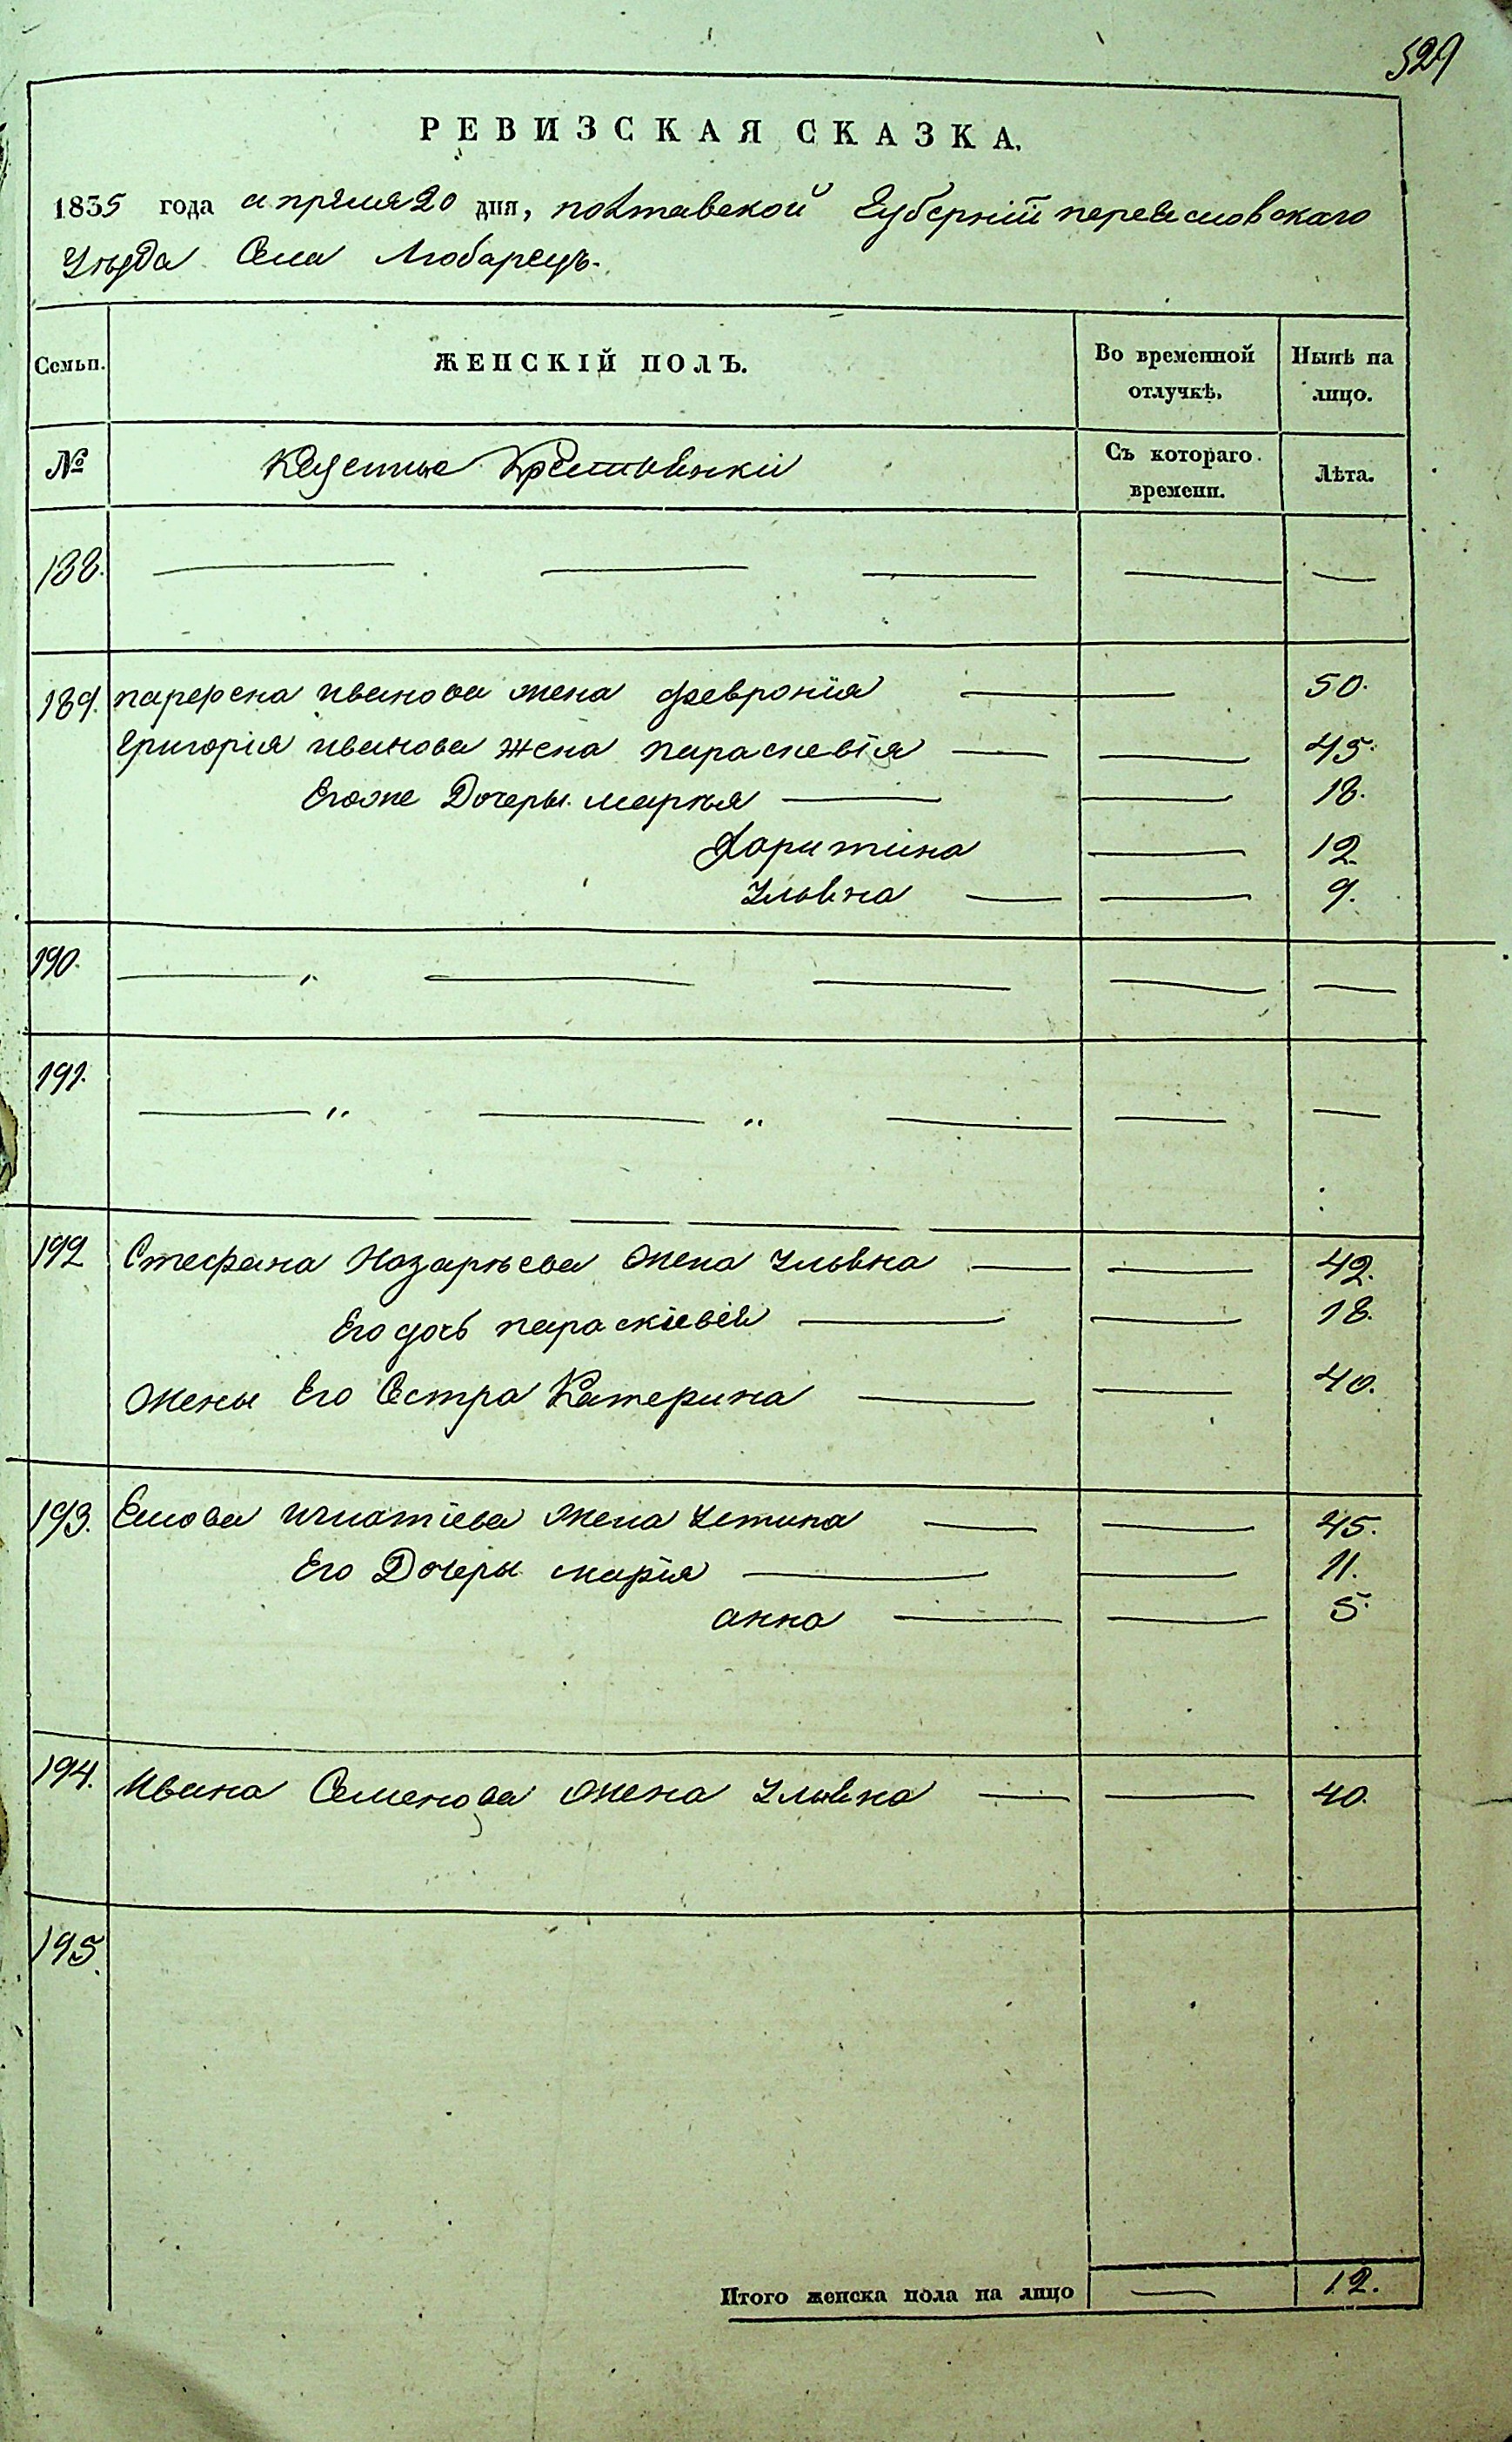 529
РЕВИЗСКАЯ СКАЗКА.
1835 года апреля 20 дня, полтавской Губерніи переясловскаго
Уезда Села Любарецъ.
Семьи. ЖЕНСКІЙ ПОЛЪ. Во временной отлучкѣ. Нынѣ на лицо.
№ Казенные Крестьянки Съ котораго времени. Лѣта.
188. — — — — —
189. парфена иванова жена феврониа — 50.
Григорія иванова жена параскевія — — 45.
Егоже Дочеры марья — — 18.
Харитина — 12.
Ульяна — — 9.
190. — — — — —
191. — — — — —
192 Стефана Назарьева жена Ульяна — — 42.
Его дочь параскіевія — — 18.
жены Его Сестра Катерина — — 40.
193. игнатіева жена Устина — — 45.
Его Дочеры марія — — 11.
анна — — 5.
194. Ивана Семенова жена Ульяна — — 40.
195.
Итого женска пола на лицо — 12.